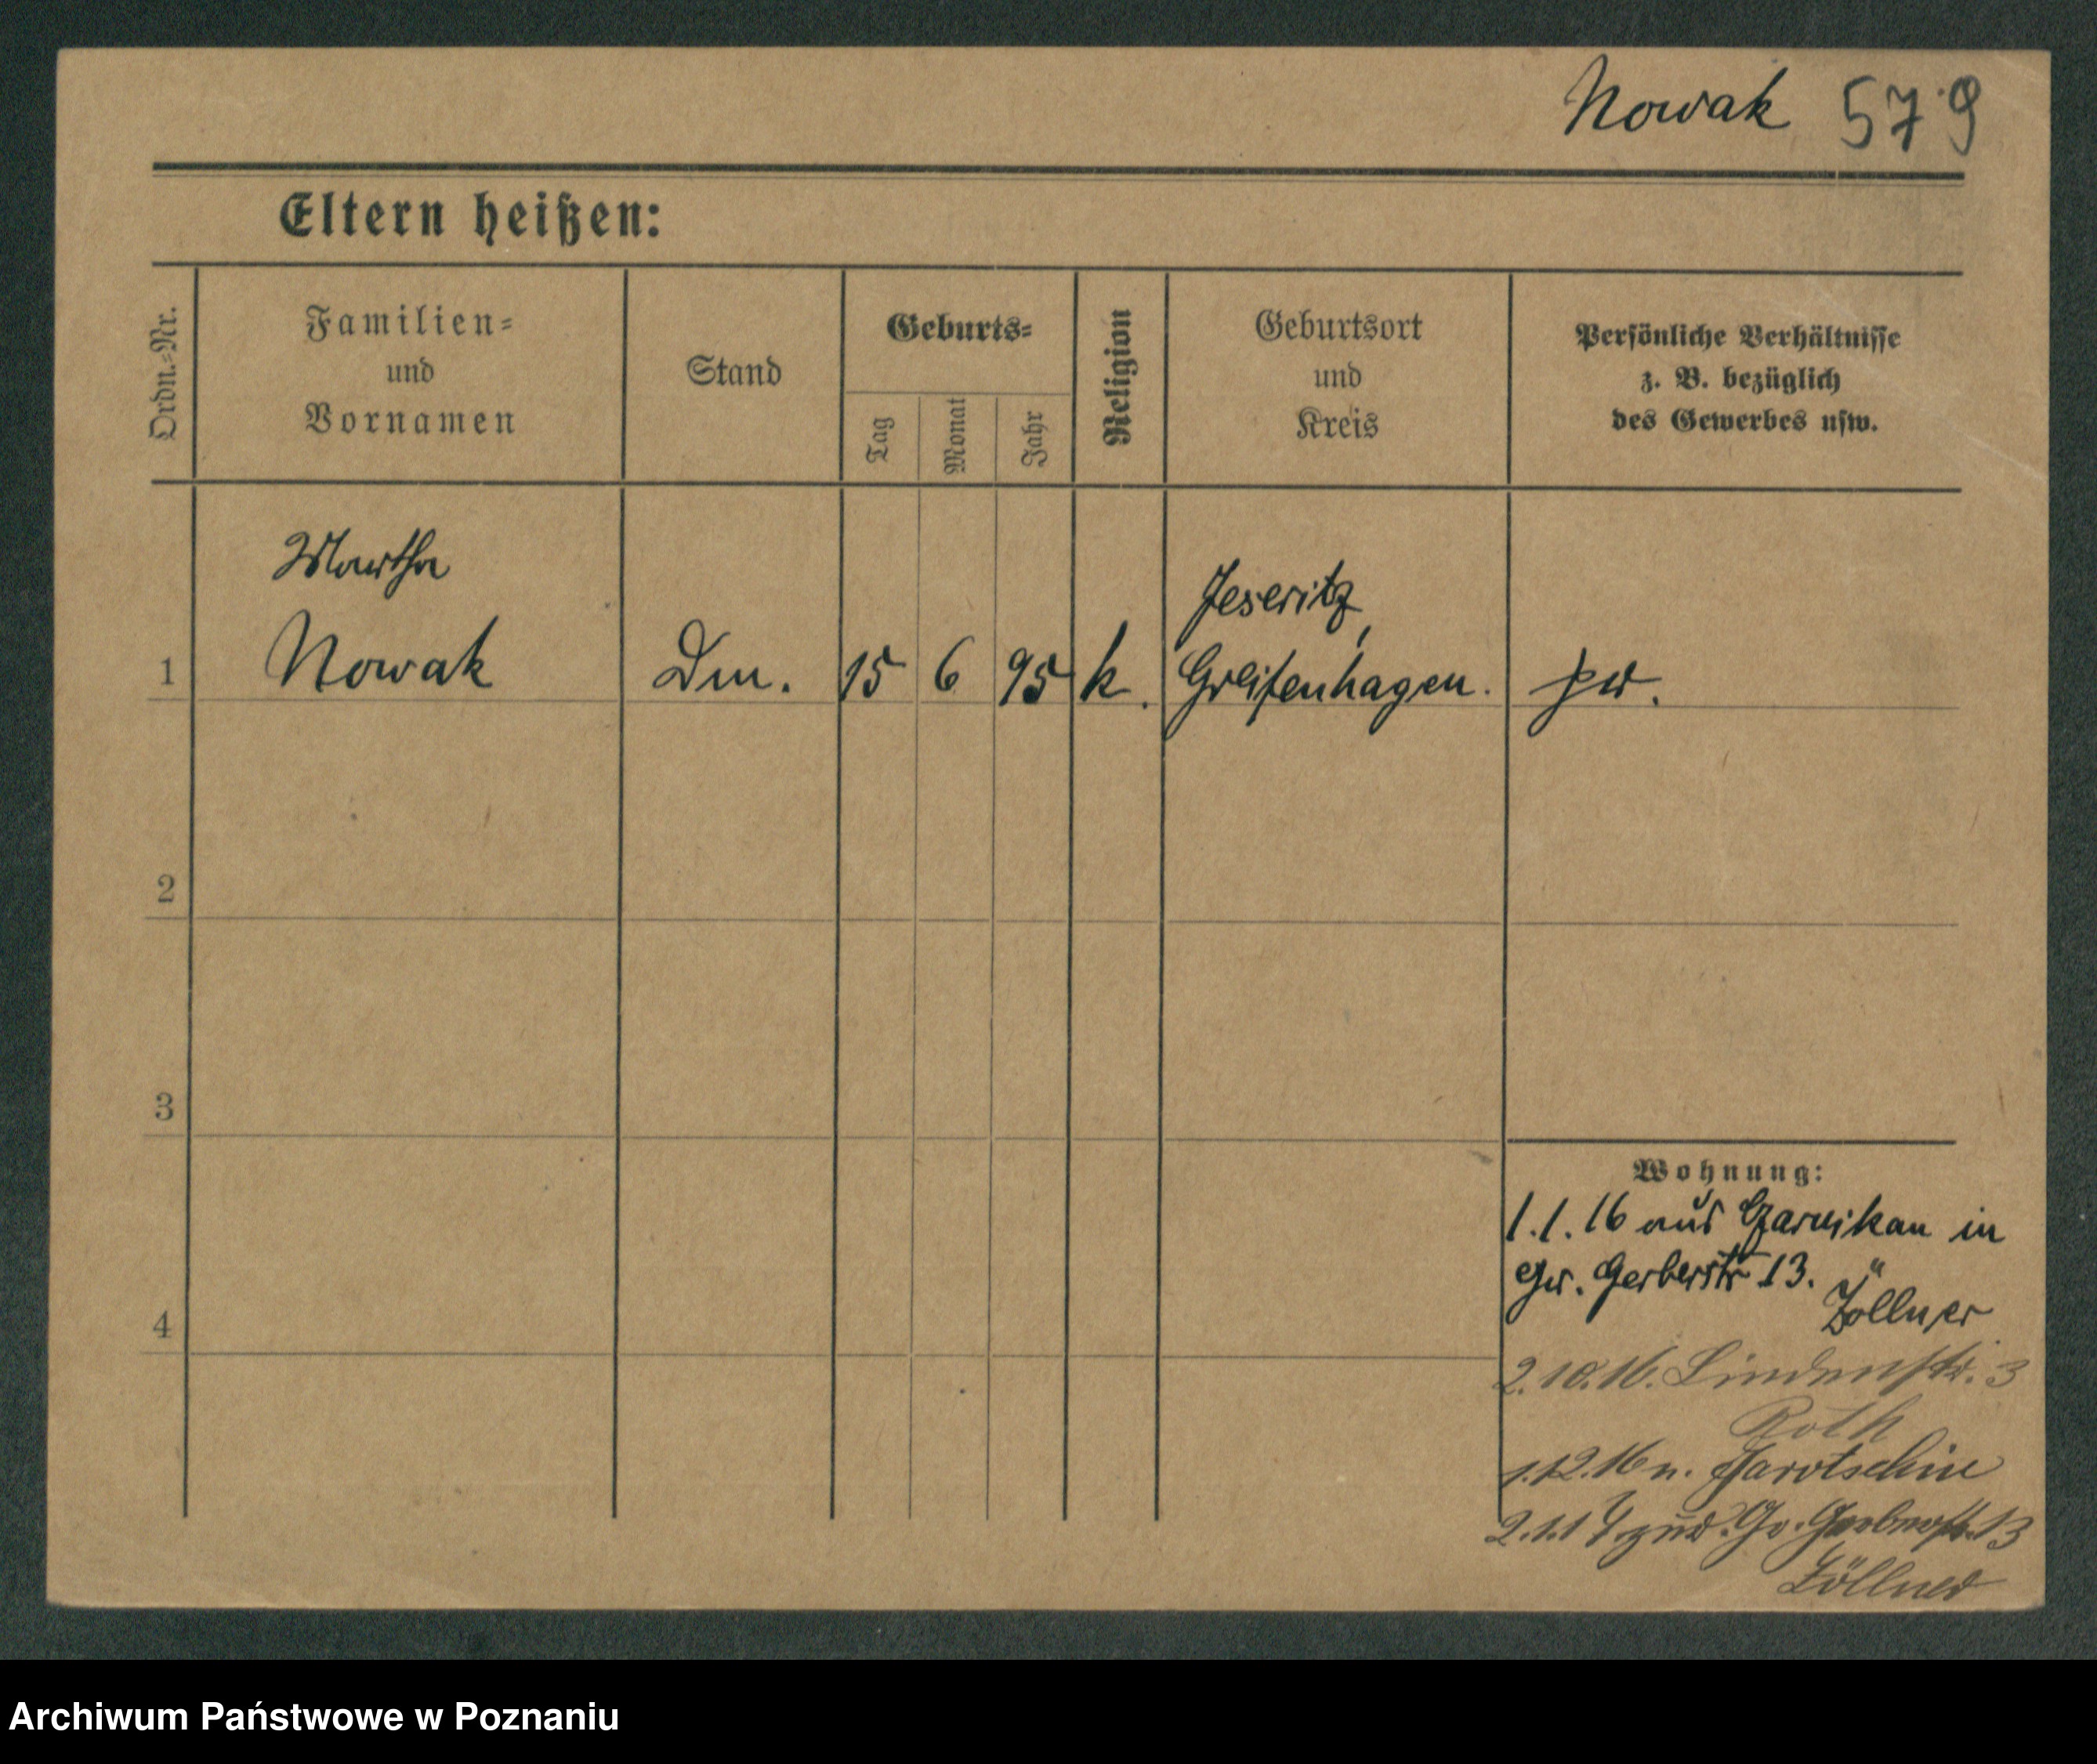 Nowak 579
Eltern heißen:
Ordn.-Nr.
Familien-
und
Vornamen
Stand
Geburts-
Tag
Monat
Jahr
Religion
Geburtsort
und
Kreis
Persönliche Verhältnisse
z. B. bezüglich
des Gewerbes usw.
Martha
Jeseritz,
1 Nowak 15 6 95 k. Greifenhagen. pr.
2
3
4
Wohnung:
1.1.16 aus Czarnikau in
Gr. Gerberstr 13.
Zöllner
2.10.16. Lindenstr. 3
Roth
1.12.16 n. Jarotschin
2.1.17 zur. Gr. Gerberstr. 13
Zöllner
Archiwum Państwowe w Poznaniu